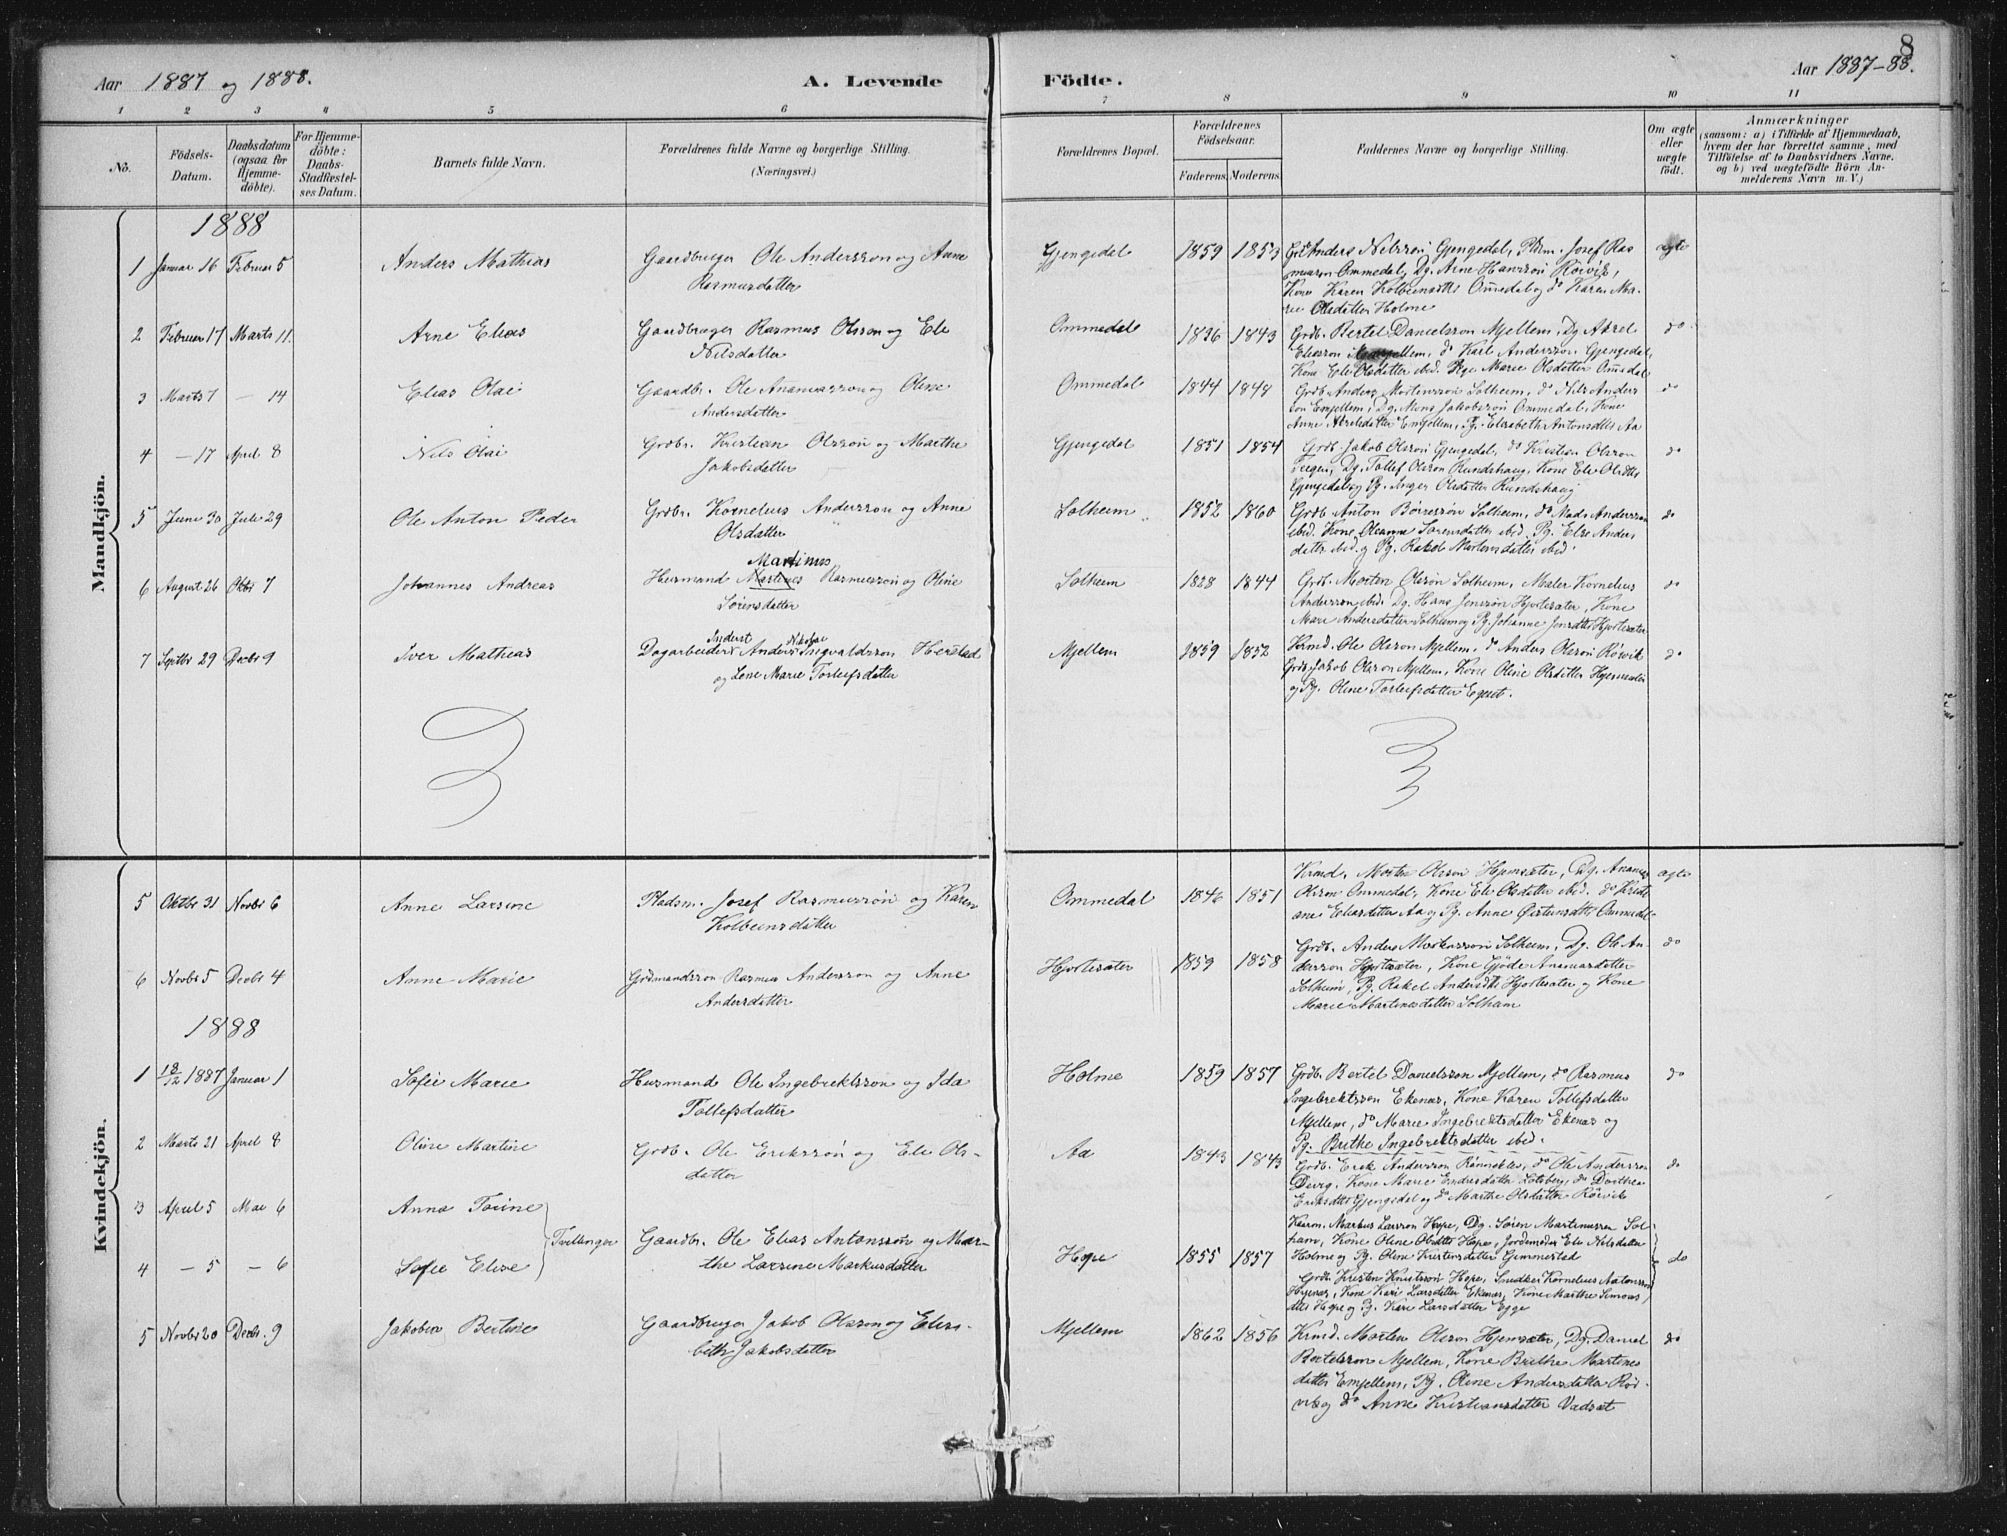 8
Aar 1887 og 1888. A. Levende Födte. Aar 1887-88.
1 2 3 4 5 6 7 8 9 10 11
No.
Födsels-Datum.
Daabsdatum (ogsaa for Hjemme-döbte).
For Hjemme-döbte: Daabs-Stadfæstel-ses Datum.
Barnets fulde Navn.
Forældrenes fulde Navne og borgerlige Stilling. (Næringsvei.)
Forældrenes Bopæl.
Forældrenes Födselsaar.
Faderens. Moderens.
Faddernes Navne og borgerlige Stilling.
Om ægte eller uægte födt.
Anmærkninger
(saasom: a) i Tilfælde af Hjemmedaab, hvem der har forrettet samme, med Tilföielse af to Daabsvidners Navne, og b) ved uægtefödte Börn An-melderens Navn m. V.)
Mandkjön.
1888
1 Januar 16 Februar 5 Anders Mathias Gaardbruger Ole Andersson og Anne
Rasmusdatter
Gjengedal 1859 1853 Anders Nilsson Gjengedal, Pdm. Josef Ras
musson Ommedal, Dg. Arne Hansson Rövik,
Kone Karen Kolbeinsdtr Omedal og do Karen Ma-
rie Olsdatter Holme
ægte
2 Februar 17 Marts 11. Arne Elias Gaardbruger Rasmus Olsson og Ele
Nilsdatter
Ommedal 1836 1843 Grdb. Bertel Danielsson Mjellem, Dg Axel
Eliasson Mjellem, do Karl Andersson Gjengedal,
Kone Ele Olsdatter ibid. Pge Marie Olsdatter Omedal
do
3 Marts 7 — 14 Elias Olai Gaardbr. Ole Ananiasson og Oline
Andersdatter
Ommedal 1844 1848 Grdb. Anders Mortensson Solheim, do Nils Anders
son Emjellem, Dg. Mons Jakobsson Ommedal, Kone
Anne Akselsdatter Emjellem, Pg. Elisabeth Antonsdtr Aa
do
4 — 17 April 8 Nils Olai Grdbr. Kristian Olsson og Marthe
Jakobsdatter
Gjengedal 1851 1854 Grdb. Jakob Olsson Gjengedal, do Kristian Olsson
Dg. Tollef Olsson Rundehaug, Kone Ele Olsdtr
Gjengedal og Pg. Inger Olsdatter Rundehaug
do
5 Juni 30 Juli 29 Ole Anton Peder Grdbr. Kornelius Andersson og Anne
Olsdatter
Solheim 1852 1860 Grdb. Anton Böiesson Solheim, do Mads Andersson
ibid. Kone Oleanna Sörensdatter ibid. Pg. Else Anders
datter ibid. og Pg. Rakel Mortensdatter ibid.
do
6 August 26 Oktbr 7 Johannes Andreas Martinus
Husmand Martines Rasmusson og Oline
Sörensdatter
Solheim 1828 1844 Grdb. Morten Olsson Solheim, Maler Kornelius
Andersson ibid. Dg. Hans Jensson Hjortesæter, Kone
Mari Andersdatter Solheim og Pg. Johanne Jensdtr Hjortesæter
do
7 Septbr 29 Decbr 9 Iver Mathias
Nikolai
Dagarbeider Anders Ingvaldsson Herstad
og Lene Marie Torleifsdatter
Mjellem 1859 1852 Krmd. Ole Olsson Mjellem, do Anders Olsson Rövik
Grdb. Jakob Olsson Mjellem, Kone Oline Olsdatter
og Pg. Oline Torleifsdatter
do
Kvindekjön.
5 Oktbr 31 Novbr 6 Anne Larsine Pladsm. Josef Rasmusson og Karen
Kolbeinsdatter
Ommedal 1846 1851 Krmd. Morten Olsson Hjemsæter, Dg. Ananias
Olsson Ommedal, Kone Ele Olsdatter ibid. do Kristi
ane Eliasdatter Aa og Pg. Anne Östensdtr Ommedal
ægte
6 Novbr 5 Decbr 4 Anne Marie Grdmandssön Rasmus Andersson og Anne
Andersdatter
Hjortesæter 1859 1858 Grdb. Anders Mortensson Solheim, Dg. Ole An-
dersson Hjortesæter, Kone Gjöde Ananiasdatter
Solheim, Pg. Rakel Andersdtr Hjortesæter og Kone
Marie Martinusdatter Solheim
do
1888
1 18/12 1887 Januar 1 Sofie Marie Husmand Ole Ingebrektsson og Ida
Tollefsdatter
Holme 1859 1857 Grdb. Bertel Danielsson Mjellem, do Rasmus
Ingebrektsson Ekenæs, Kone Karen Tollefsdatter
Mjellem, do Marie Ingebrektsdatter Ekenæs og
Pg. Brithe Ingebrektsdatter ibid.
do
2 Marts 21 April 8 Oline Martine Grdb. Ole Eriksson og Ele Ols-
datter
Aa 1843 1843 Grdb. Erik Andersson Rönneklev, do Ole Andersson
Kone Marie Endresdatter Lotsberg, do Dorthea
Eriksdtr Gjengedal og do Marthe Olsdatter Rövik
do
3 April 5 Mai 6 Anna Torine
4 — 5 — 6 Sofie Elise
Tvillinger
Gaardbr. Ole Elias Antonsson og Mar-
the Larsine Markusdatter
Hope 1855 1857
Markus Larsson Hope, Dg. Sören Martinussen Sol-
heim, Kone Oline Olsdtr Hope, Jordemoder Ele Nilsdatter
Holme og Pg. Oline Kristensdatter Gimmestad
Grdb. Kristen Knutsson Hope, Snedker Kornelius Antonsson
Kone Kari Larsdatter Ekenæs, Kone Marthe Simons
dtr Hope og Pg. Kari Larsdatter Egge
do
5 Novbr 20 Decbr. 9 Jakobea Bertine Gaardbruger Jakob Olsson og Elisa-
beth Jakobsdatter
Mjellem 1862 1856 Krmd. Morten Olsson Hjemsæter, Dg. Daniel
Bertelsson Mjellem, Kone Brithe Martines
datter Emjellem, Pg. Oline Andersdatter Röd-
og do Anne Kristiansdatter Vadset
do